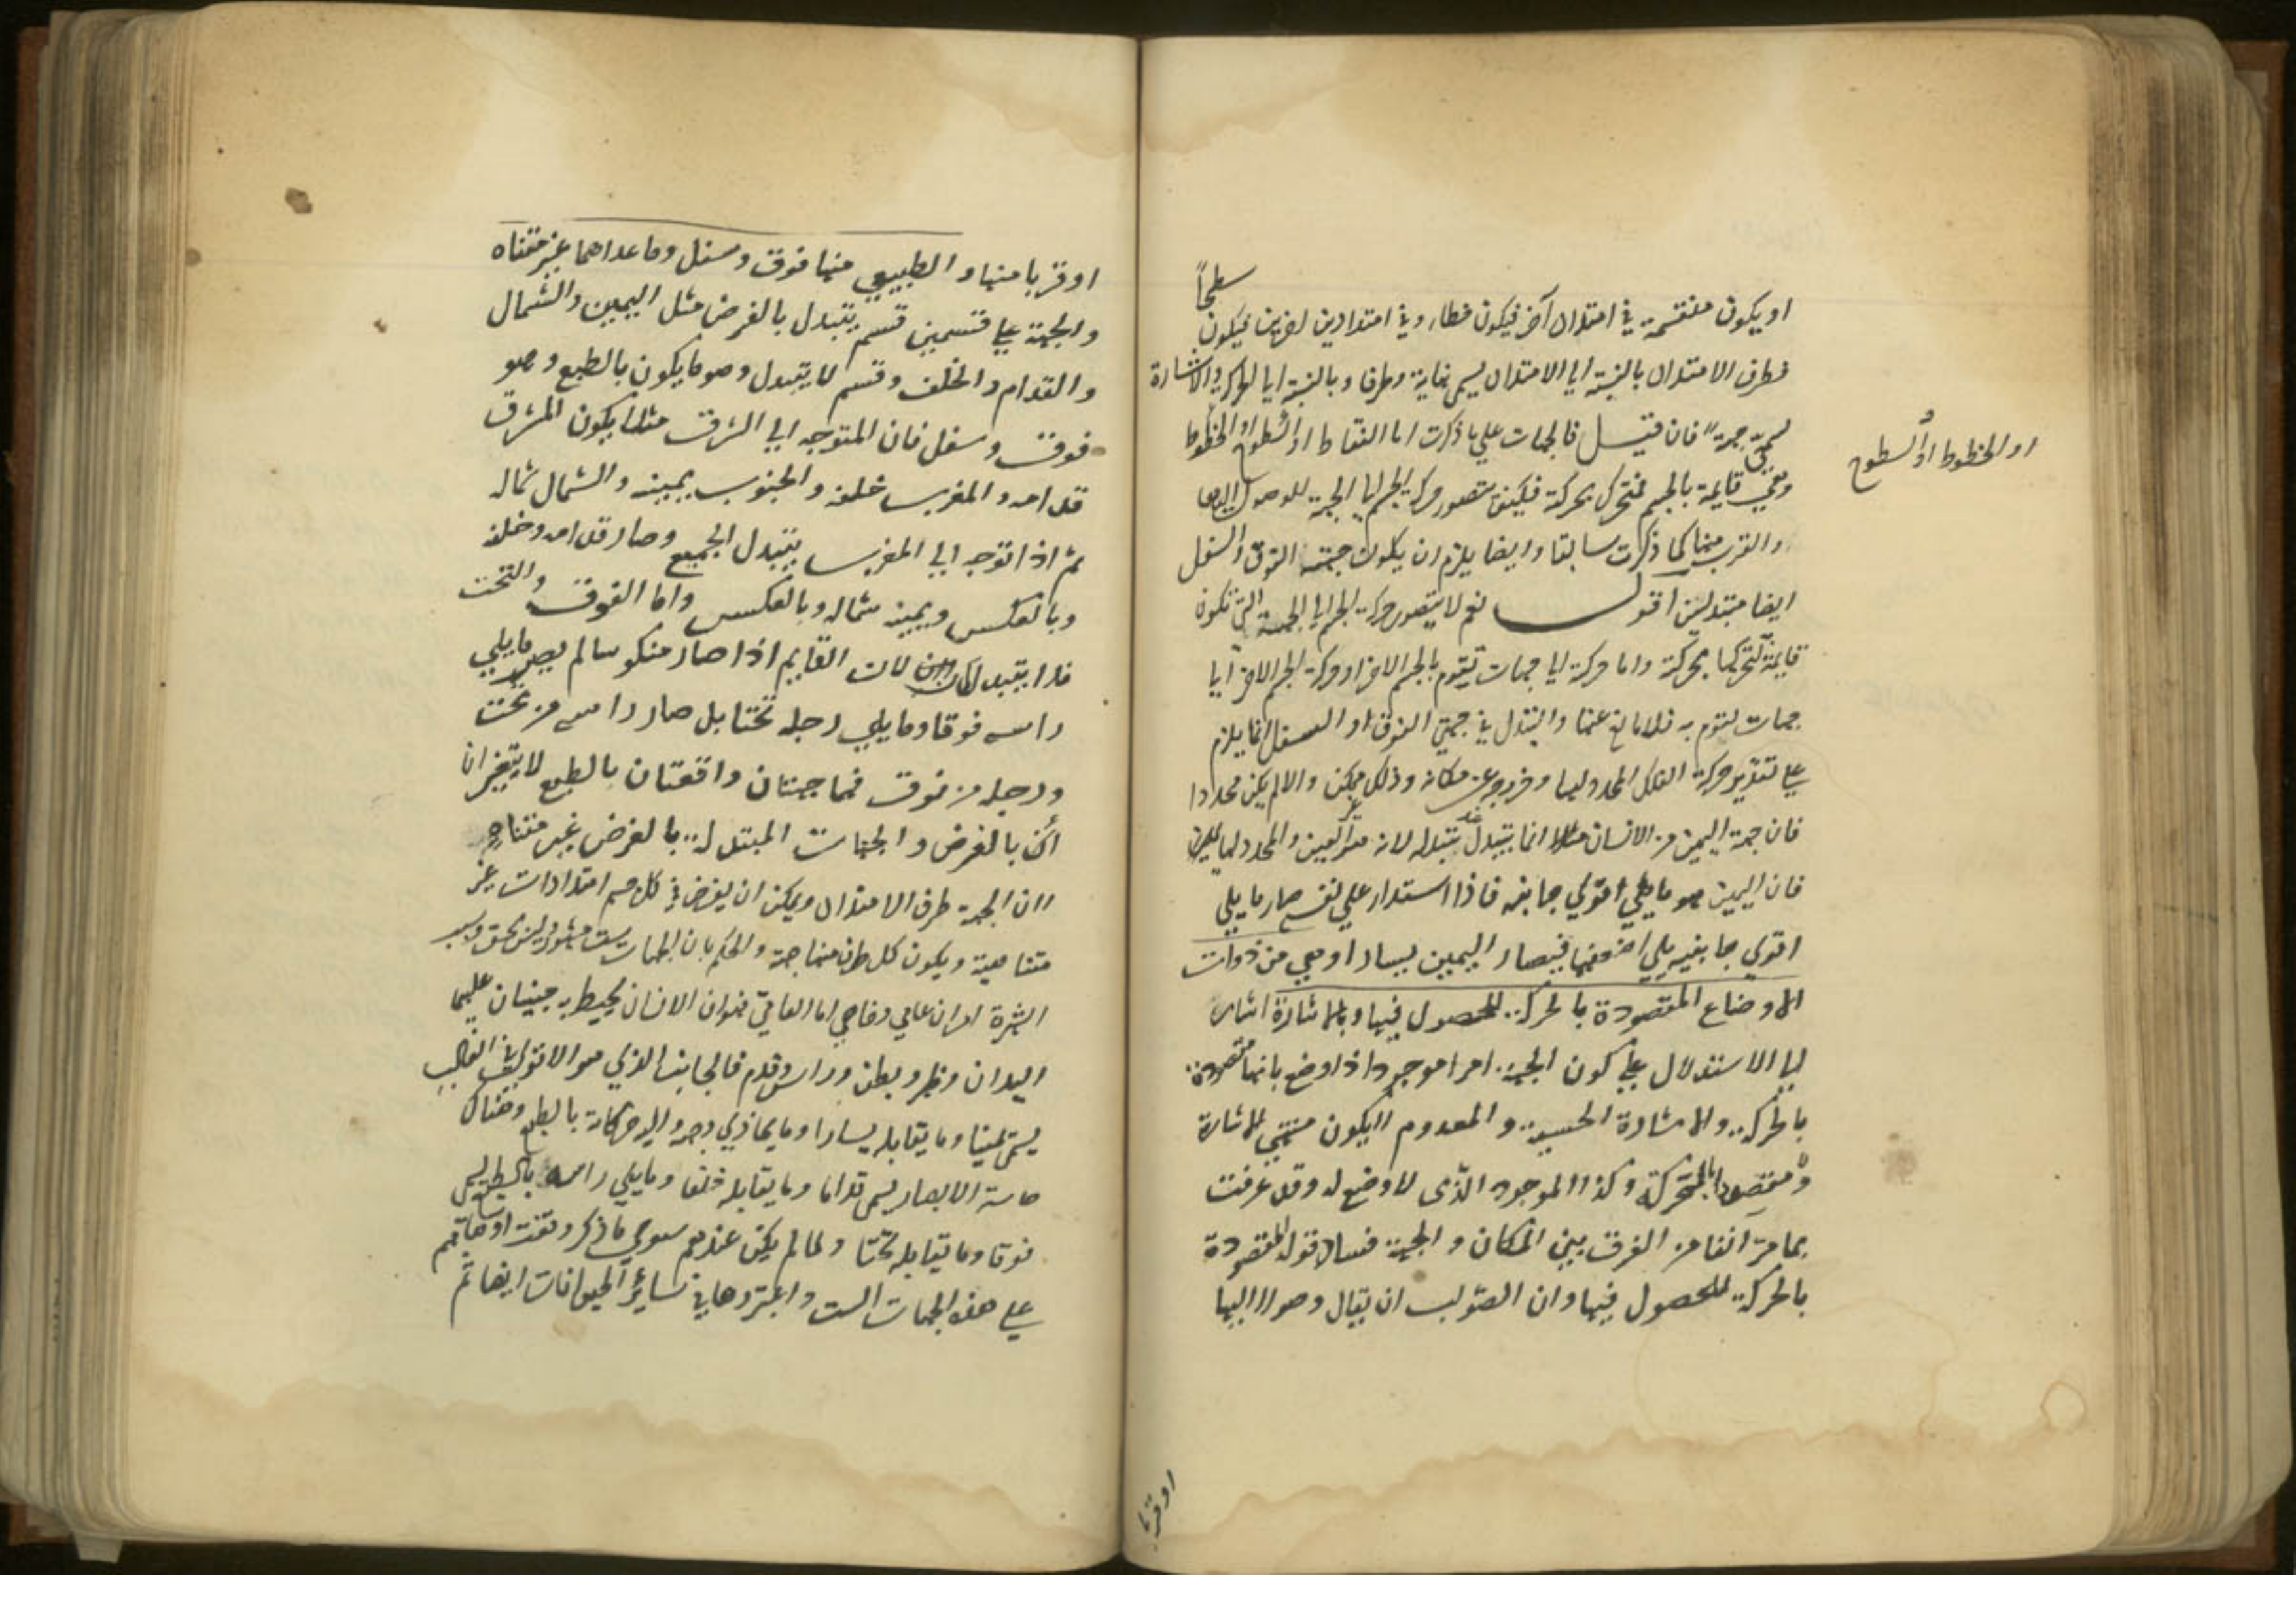 سطحاً
او يكون منقسمة في امتداد آخر فيكون خطا او في امتدادين اخرين فيكون
فطرف الامتداد بالنسبة الى الامتداد يسمى نهاية وطرفا وبالنسبة الى الحركة والاشارة
يسمى جهة فان قيل فالجهات على ما ذكرت اما النقاط او السطوح او الخطوط
او الخطوط او السطوح
وهي قايمة بالجسم فتتحرك بحركة فكيف يتصور حركة الجسم الى الجهة للوصول اليها
والقرب منها كما ذكرت سابقا وايضا يلزم ان يكون جهتا الفوق والسفل
ايضا متبدلين اقول نعم لا يتصور حركة الجسم الى الجهة التي تكون
قايمة لتحركها بحركة واما حركة الى جهات تقوم بالجسم الاخر او حركة الجسم الاخر الى
جهات تقوم به فلا مانع عنها والتبدل في جهتي الفوق او السفل انما يلزم
على تقدير حركة الفلك المحدد لها وخروجه عن مكانه وذلك ممكن والا لم يكن محددا
فان جهة اليمين من الانسان مثلا انما يتبدل عند تبدله لانه
فان اليمين هو ما يلي اقوى جانبه فاذا استدار على نفسه صار ما يلي
اقوى جانبيه يلي اضعفهما فيصار اليمين يسارا وهي من ذوات
الاوضاع المقصودة بالحركة للحصول فيها وبالاشارة اشارة
الى الاستدلال على كون الجهة امرا موجودا ذا وضع بانها مقصودة
بالحركة والاشارة الحسية والمعدوم لا يكون منتهى الاشارة
ومقصدا للمتحركة وكذا الموجود الذى لا وضع له وقد عرفت
بما مر آنفا من الفرق بين المكان والجهة فساد قوله المقصودة
بالحركة للحصول فيها وان الصواب ان يقال وصولا اليها
او قربا
او قربا منها والطبيعي منها فوق وسفل وما عداهما غير متناه
والجهة على قسمين قسم يتبدل بالفرض مثل اليمين والشمال
والقدام والخلف وقسم لا يتبدل وهو ما يكون بالطبع وهو
فوق وسفل فان المتوجه الى الشرق مثلا يكون المشرق
قدامه والمغرب خلفه والجنوب يمينه والشمال شماله
ثم اذا توجه الى المغرب يتبدل الجميع وصار قدامه وخلفه
وبالعكس ويمينه شماله وبالعكس واما الفوق والتحت
فلا يتبدلان لان القايم اذا صار منكوسا لم يصر ما يلي
راسه فوقا وما يلي رجله تحتا بل صار راسه من تحت
ورجله من فوق فهما جهتان واقعتان بالطبع لا يتغيران
بالفرض والجهات المبتدلة بالفرض غير متناه
لان الجهة طرف الامتداد ويمكن ان يفرض في كل جسم امتدادات غير
متناهية ويكون كل طرف منها جهة والحكم بان الجهات ست مشهور ليس بحق وسبب
الشهرة امران عامي وخاصي اما العامي فهو ان الانسان يحيط به جنبان عليهما
اليدان وظهر وبطن وراس وقدم فالجانب الذي هو الاقوى في الغالب
يسمى يمينا وما يقابله يسارا وما يحاذي وجهه واليه حركاته بالطبع وهناك
حاسة الابصار يسمى قداما وما يقابله خلفا وما يلي راسه بالطبع يسمى
فوقا وما يقابله تحتا ولما لم يكن عندهم سوى ما ذكر وقفت اوهامهم
على هذه الجهات الست واعتبروها في ساير الحيوانات ايضا ثم